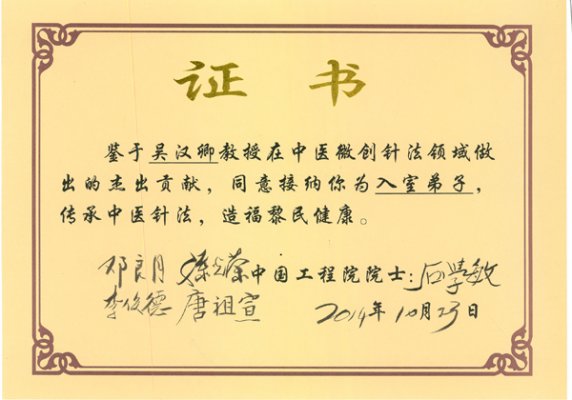 证 书
鉴于吴汉卿教授在中医微创针法领域做
出的杰出贡献，同意接纳你为入室弟子，
传承中医针法，造福黎民健康。
邓良月 中国工程院院士：石学敏
李俊德 唐祖宣 2014年10月23日